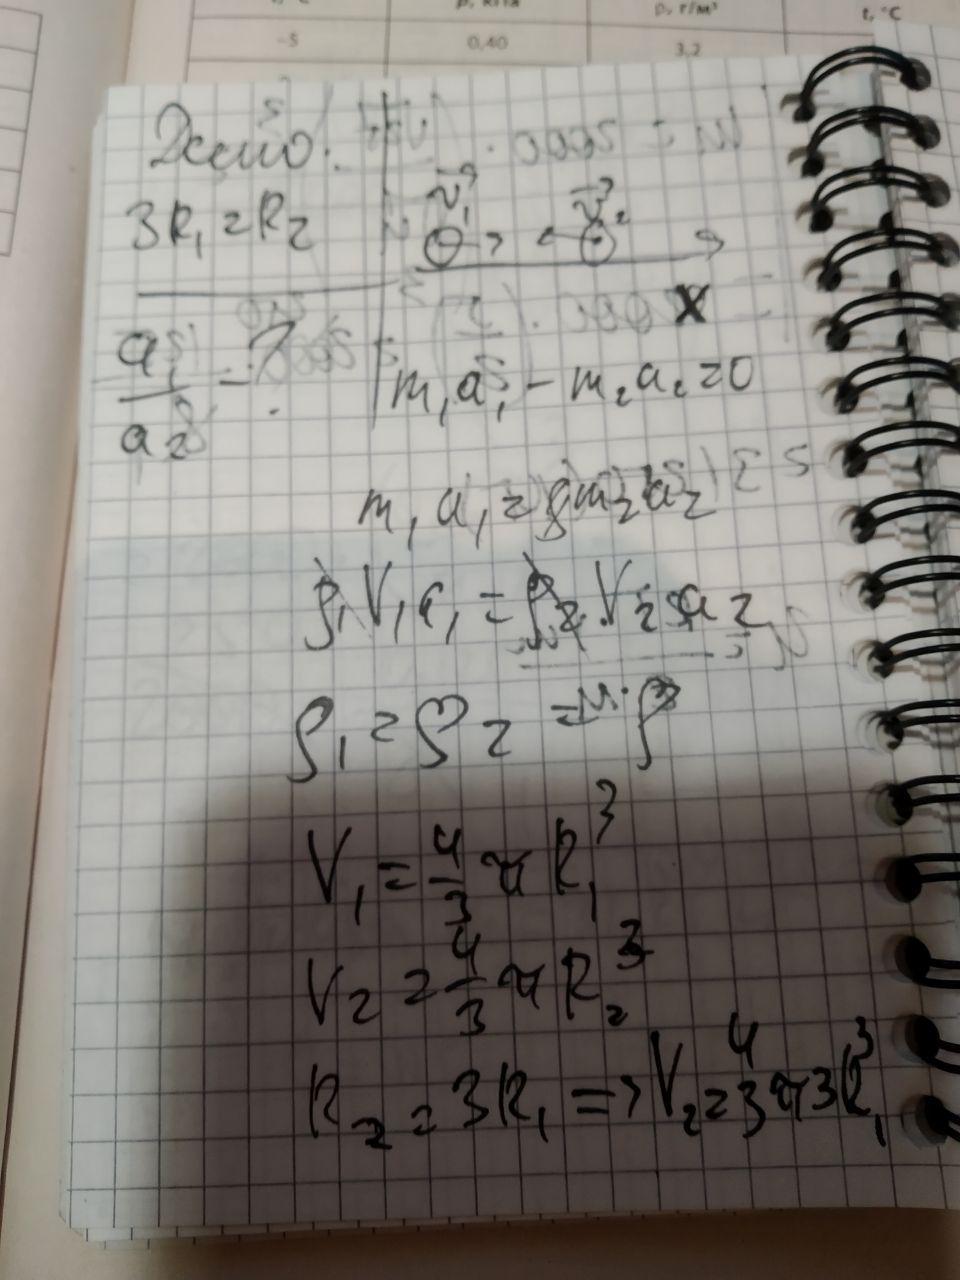 p, кПа p, г/м³ t, °C
-5 0,40 3,2
Дано:
3R₁ = R₂
v⃗₁ v⃗₂
x
a₁/a₂ - ?
m₁a₁ - m₂a₂ = 0
m₁a₁ = m₂a₂
ρ₁V₁a₁ = ρ₂V₂a₂
ρ₁ = ρ₂ = ρ
V₁ = 4/3 π R₁³
V₂ = 4/3 π R₂³
R₂ = 3R₁ => V₂ = 4/3 π 3R₁³